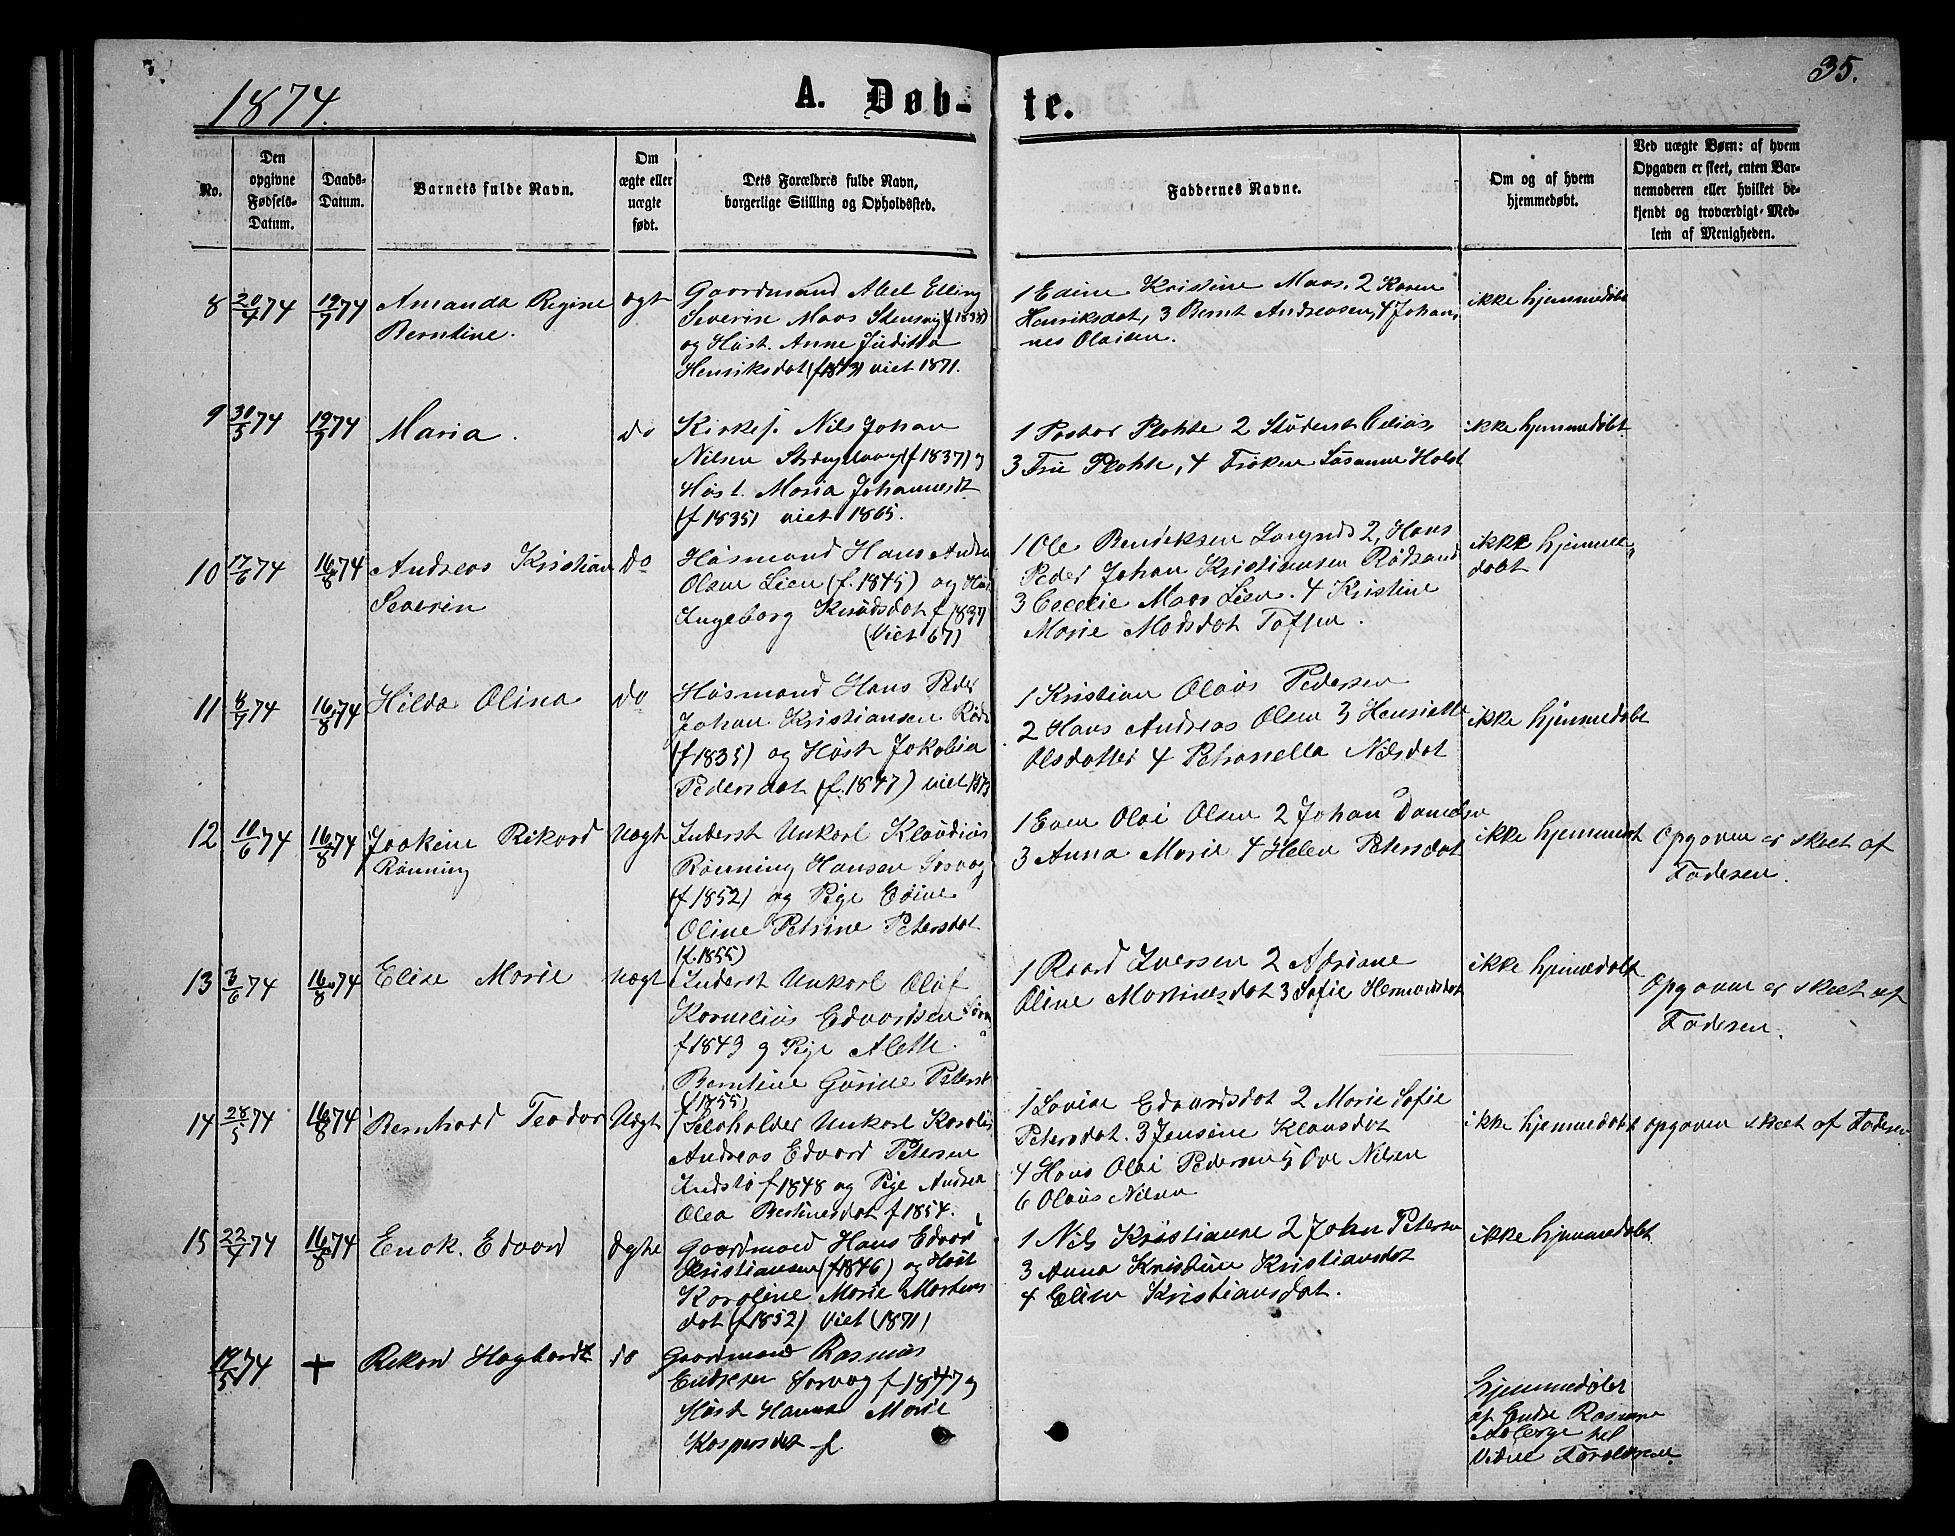 1874.
A. Døb-
te.
35.
No.
Den
opgivne
Fødsels-
Datum.
Daabs-
Datum.
Barnets fulde Navn.
Om
ægte eller
uægte
født.
Dets Forældres fulde Navn,
borgerlige Stilling og Opholdssted.
Faddernes Navne.
Om og af hvem
hjemmedøbt.
Ved uægte Børn: af hvem
Opgaven er skeet, enten Bar-
nemoderen eller hvilket be-
kjendt og troværdigt Med-
lem af Menigheden.
8 20/4 74 19/7 74 Amanda Regine
Berntine.
ægt
Gaardmand Abel Elling
Severin Maas Stensvg (f 1838)
og Hust. Anne Juditha
Henriksdat (f 1843) viet 1871.
1 Edine Kristine Maas, 2 Karen
Henriksdat, 3 Bernt Andreasen, 4 Johan,
nes Olaisen.
ikke hjemmedøbt
9 30/5 74 19/7 74 Maria.
do
Kirkes. Nils Johan
Nilsen (f 1837) og
Hust. Maria Johannesdt
(f 1835) viet 1865.
1 Pastor Plahte 2 Student
3 Frue Plahte, 4 Frøken Susanne Holst
ikke hjemmedøbt
10 17/6 74 16/8 74 Andreas Kristian
Severin
do
Husmand Hans Andrea
Olsen Lien (f. 1845) og Hust
Ingeborg Knudsdat f 1837
(Viet 67)
1 Ole Bendiksen 2, Hans
Peder Johan Kristiansen Rødsand
3 Cecelie Maas Lien. 4 Kristine
Marie Madsdat Toften.
ikke hjemme-
døbt
11 6/7 74 16/8 74 Hilda Olina
do
Husmand Hans Peder
Johan Kristiansen Røds
(f 1835) og Hust. Jakobia
Pedersdat (f. 1847) viet 1873
1 Kristian Olaus Pedersen
2 Hans Andreas Olsen 3 Henriette
Olsdatter 4 Petronella Nilsdat
ikke hjemmedøbt
12 10/6 74 16/8 74 Joakim Rikard
Rønning
Uægt
Inderst Unkarl Klaudius
Rønning Hansen Sørvaag
(f 1852) og Pige Edine
Oline Petrine Petersdat
(f. 1855)
1 Even Olai Olsen 2 Johan Danielsen
3 Anna Marie 4 Helen Petersdat
ikke hjemmedøbt
Opgaven er skeet af
Faderen.
13 3/6 74 16/8 74 Elise Marie
Uægt
Inderst Unkarl Oluf
Kornelius Edvardsen
f 1849 og Pige Aleth.
Berntine Gurine Petersd
(f 1855)
1 Roard Iversen 2 Adriane
Oline Martinesdat 3 Sofie Hermandsdat
ikke hjemmedøbt
Opgaven er skeet af
Faderen.
14 28/5 74 16/8 74 Bernhard Teodor
Uægt
Seloholder Unkarl Karolius
Andreas Edvard Petersen
Indstø f 1848 og Pige Andrea
Olea Bertinesdat f 1854.
1 Lovise Edvardsdat 2 Marie Sofie
Petersdat. 3 Jensine Klausdat
4 Hans Olai Pedersen 5 Ove Nilsen
6 Olaus Nilsen
ikke hjemmedøbt
opgaven skeet af Faderen
15 22/4 74 16/8 74 Enok. Edvard
Ægte
Gaardmand Hans Edvard
Kristiansen (f 1846) og Hust
Karoline Marie Martens
dat (f 1852) Viet (1871)
1 Nils Kristianse 2 John Petersen
3 Anna Kristine Kristiansdat
4 Elisen Kristiansdat.
ikke hjemmedøbt
19/5 74 + Rikard Hagbardt
do
Gaardmand Rasmus
Endresen Sørvaag f 1847 og
Hust Hanna Marie
Kaspersdat f.
hjemmedøbt
af Endre Rasmus
Aaberge til
Vidne Forældrene.